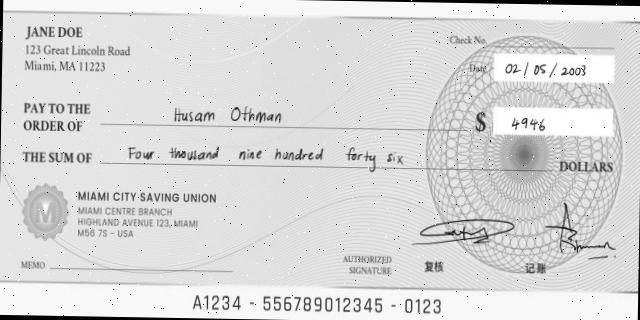 JANE DOE
123 Great Lincoln Road
Miami, MA 11223
Check No.
Date 02/05/2003
PAY TO THE
ORDER OF Husam Othman $ 4946
THE SUM OF Four thousand nine hundred forty six DOLLARS
M MIAMI CITY SAVING UNION
MIAMI CENTRE BRANCH
HIGHLAND AVENUE 123, MIAMI
M56 7S - USA
MEMO
AUTHORIZED
SIGNATURE
复核 记账
A1234 - 556789012345 - 0123